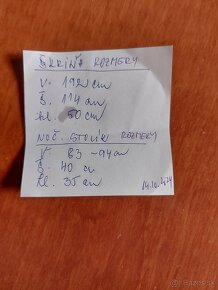 SKRIŇA ROZMERY
V. 192 cm
Š. 114 cm
hl. 50 cm
NOČ. STOLÍK ROZMERY
V. 63 -94 cm
Š. 40 cm
hl. 35 cm